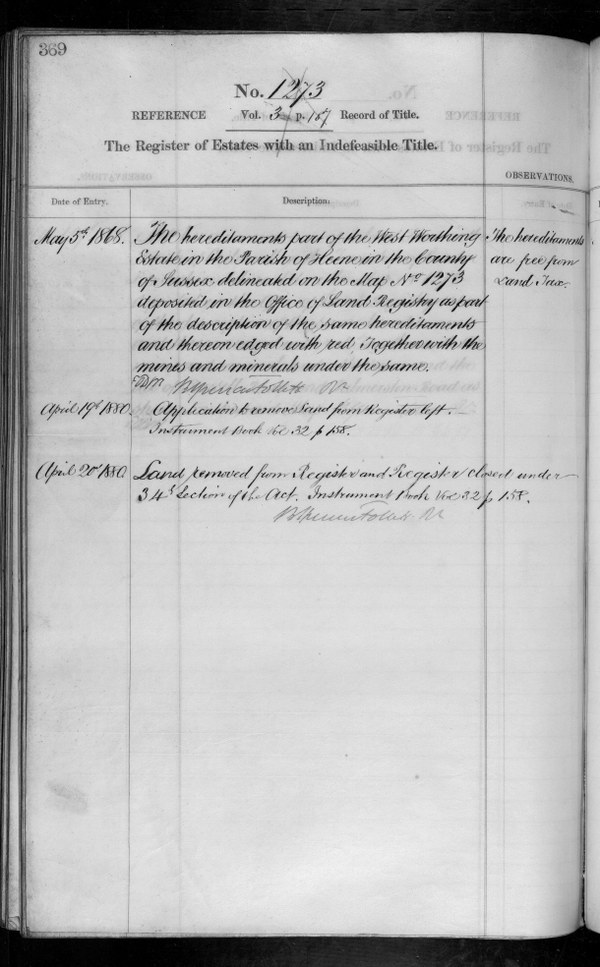 369
No. 1273
REFERENCE Vol. 3 p. 157 Record of Title.
The Register of Estates with an Indefeasible Title.
OBSERVATIONS.
Date of Entry.
Description:
May 5th 1868.
The hereditaments part of the West Worthing
Estate in the Parish of Heene in the County
of Sussex delineated on the Map No 1273
deposited in the Office of Land Registry as part
of the description of the same hereditaments
and thereon edged with red, Together with the
mines and minerals under the same.
The hereditaments
are free from
Land Tax.
April 19th 1880.
Application to remove Land from Register left.
Instrument Book Vol 32 p 158.
April 20th 1880
Land removed from Register and Register closed under
34th Section of the Act. Instrument Book Vol 32 p 158.